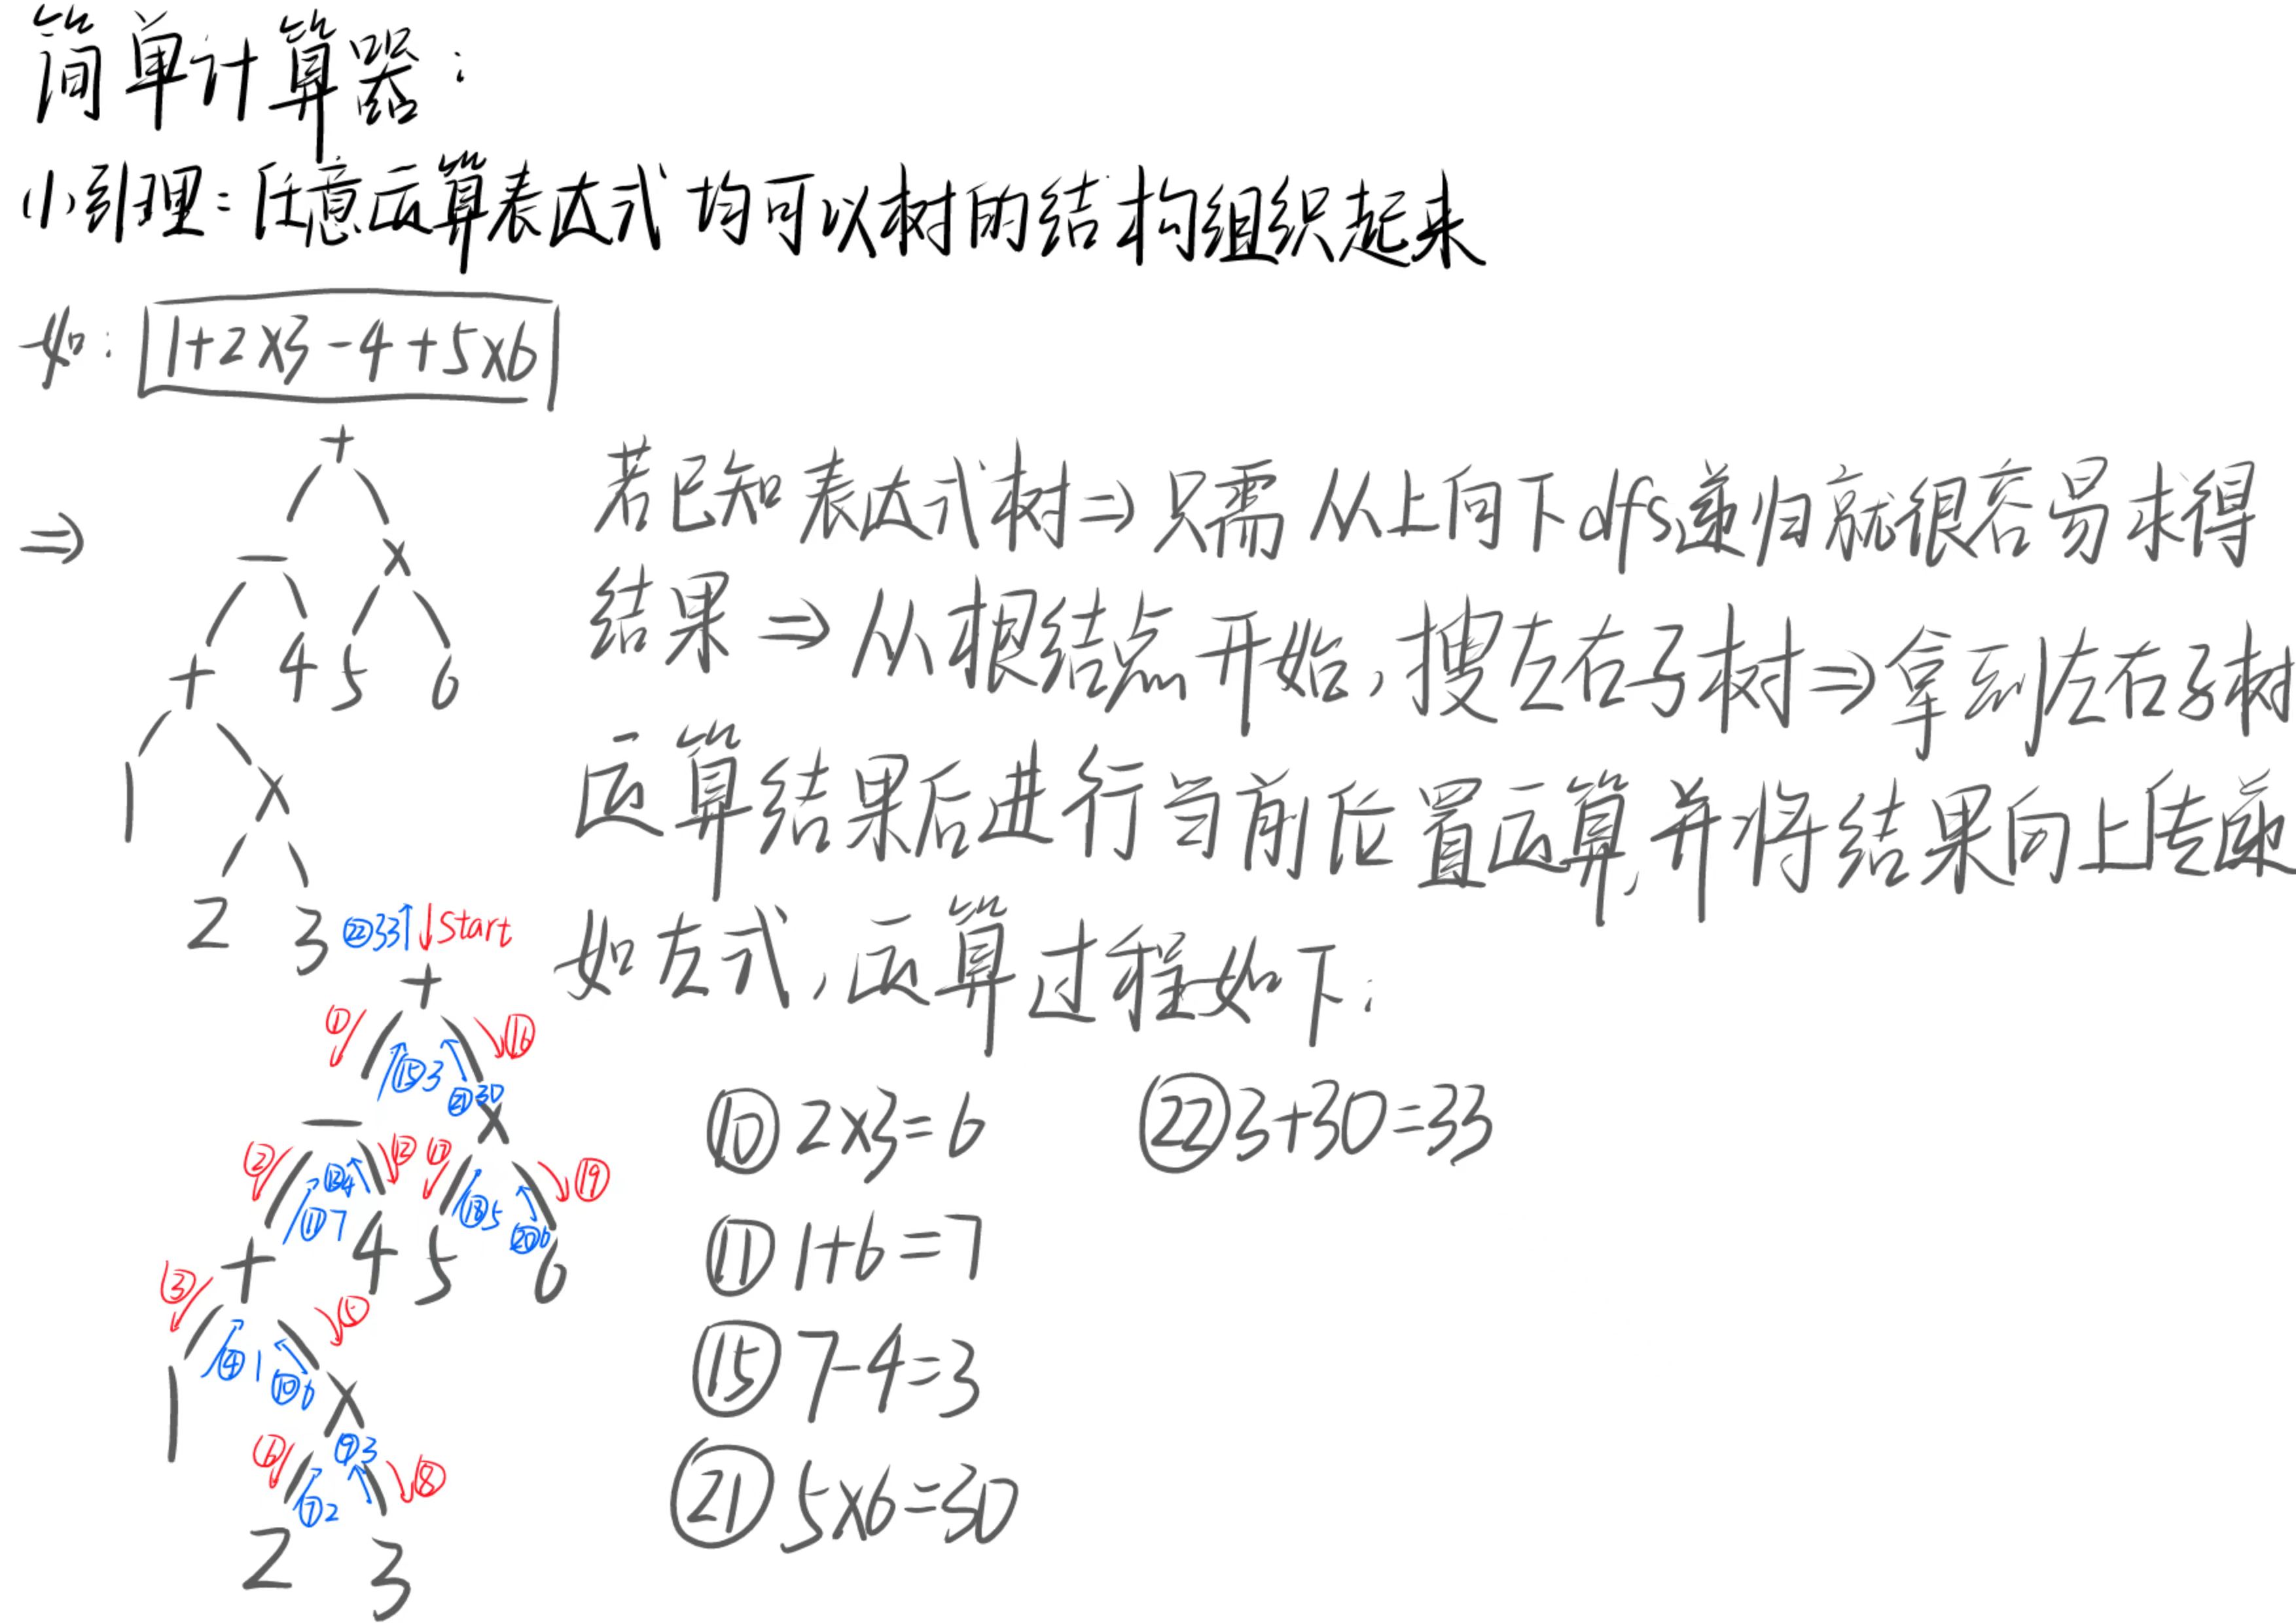 简单计算器：
(1)引理：任意运算表达式 均可以树的结构组织起来
如：1+2×3-4+5×6
⇒
+
- ×
+ 4 5 6
1 ×
2 3
若已知表达式树⇒只需从上向下dfs递归就很容易求得
结果⇒从根结点开始，搜左右子树⇒拿到左右子树
运算结果后进行当前位置运算，并将结果向上传递
如左式，运算过程如下：
㉒33↑ ↓Start
+
① ⑮3 ㉑30 ⑯
- ×
② ⑪7 ⑬4 ⑫ ⑰ ⑱5 ⑳6 ⑲
+ 4 5 6
③ ④1 ⑩6 ⑤
1 ×
⑥ ⑦2 ⑨3 ⑧
2 3
⑩ 2×3=6
㉒ 3+30=33
⑪ 1+6=7
⑮ 7-4=3
㉑ 5×6=30